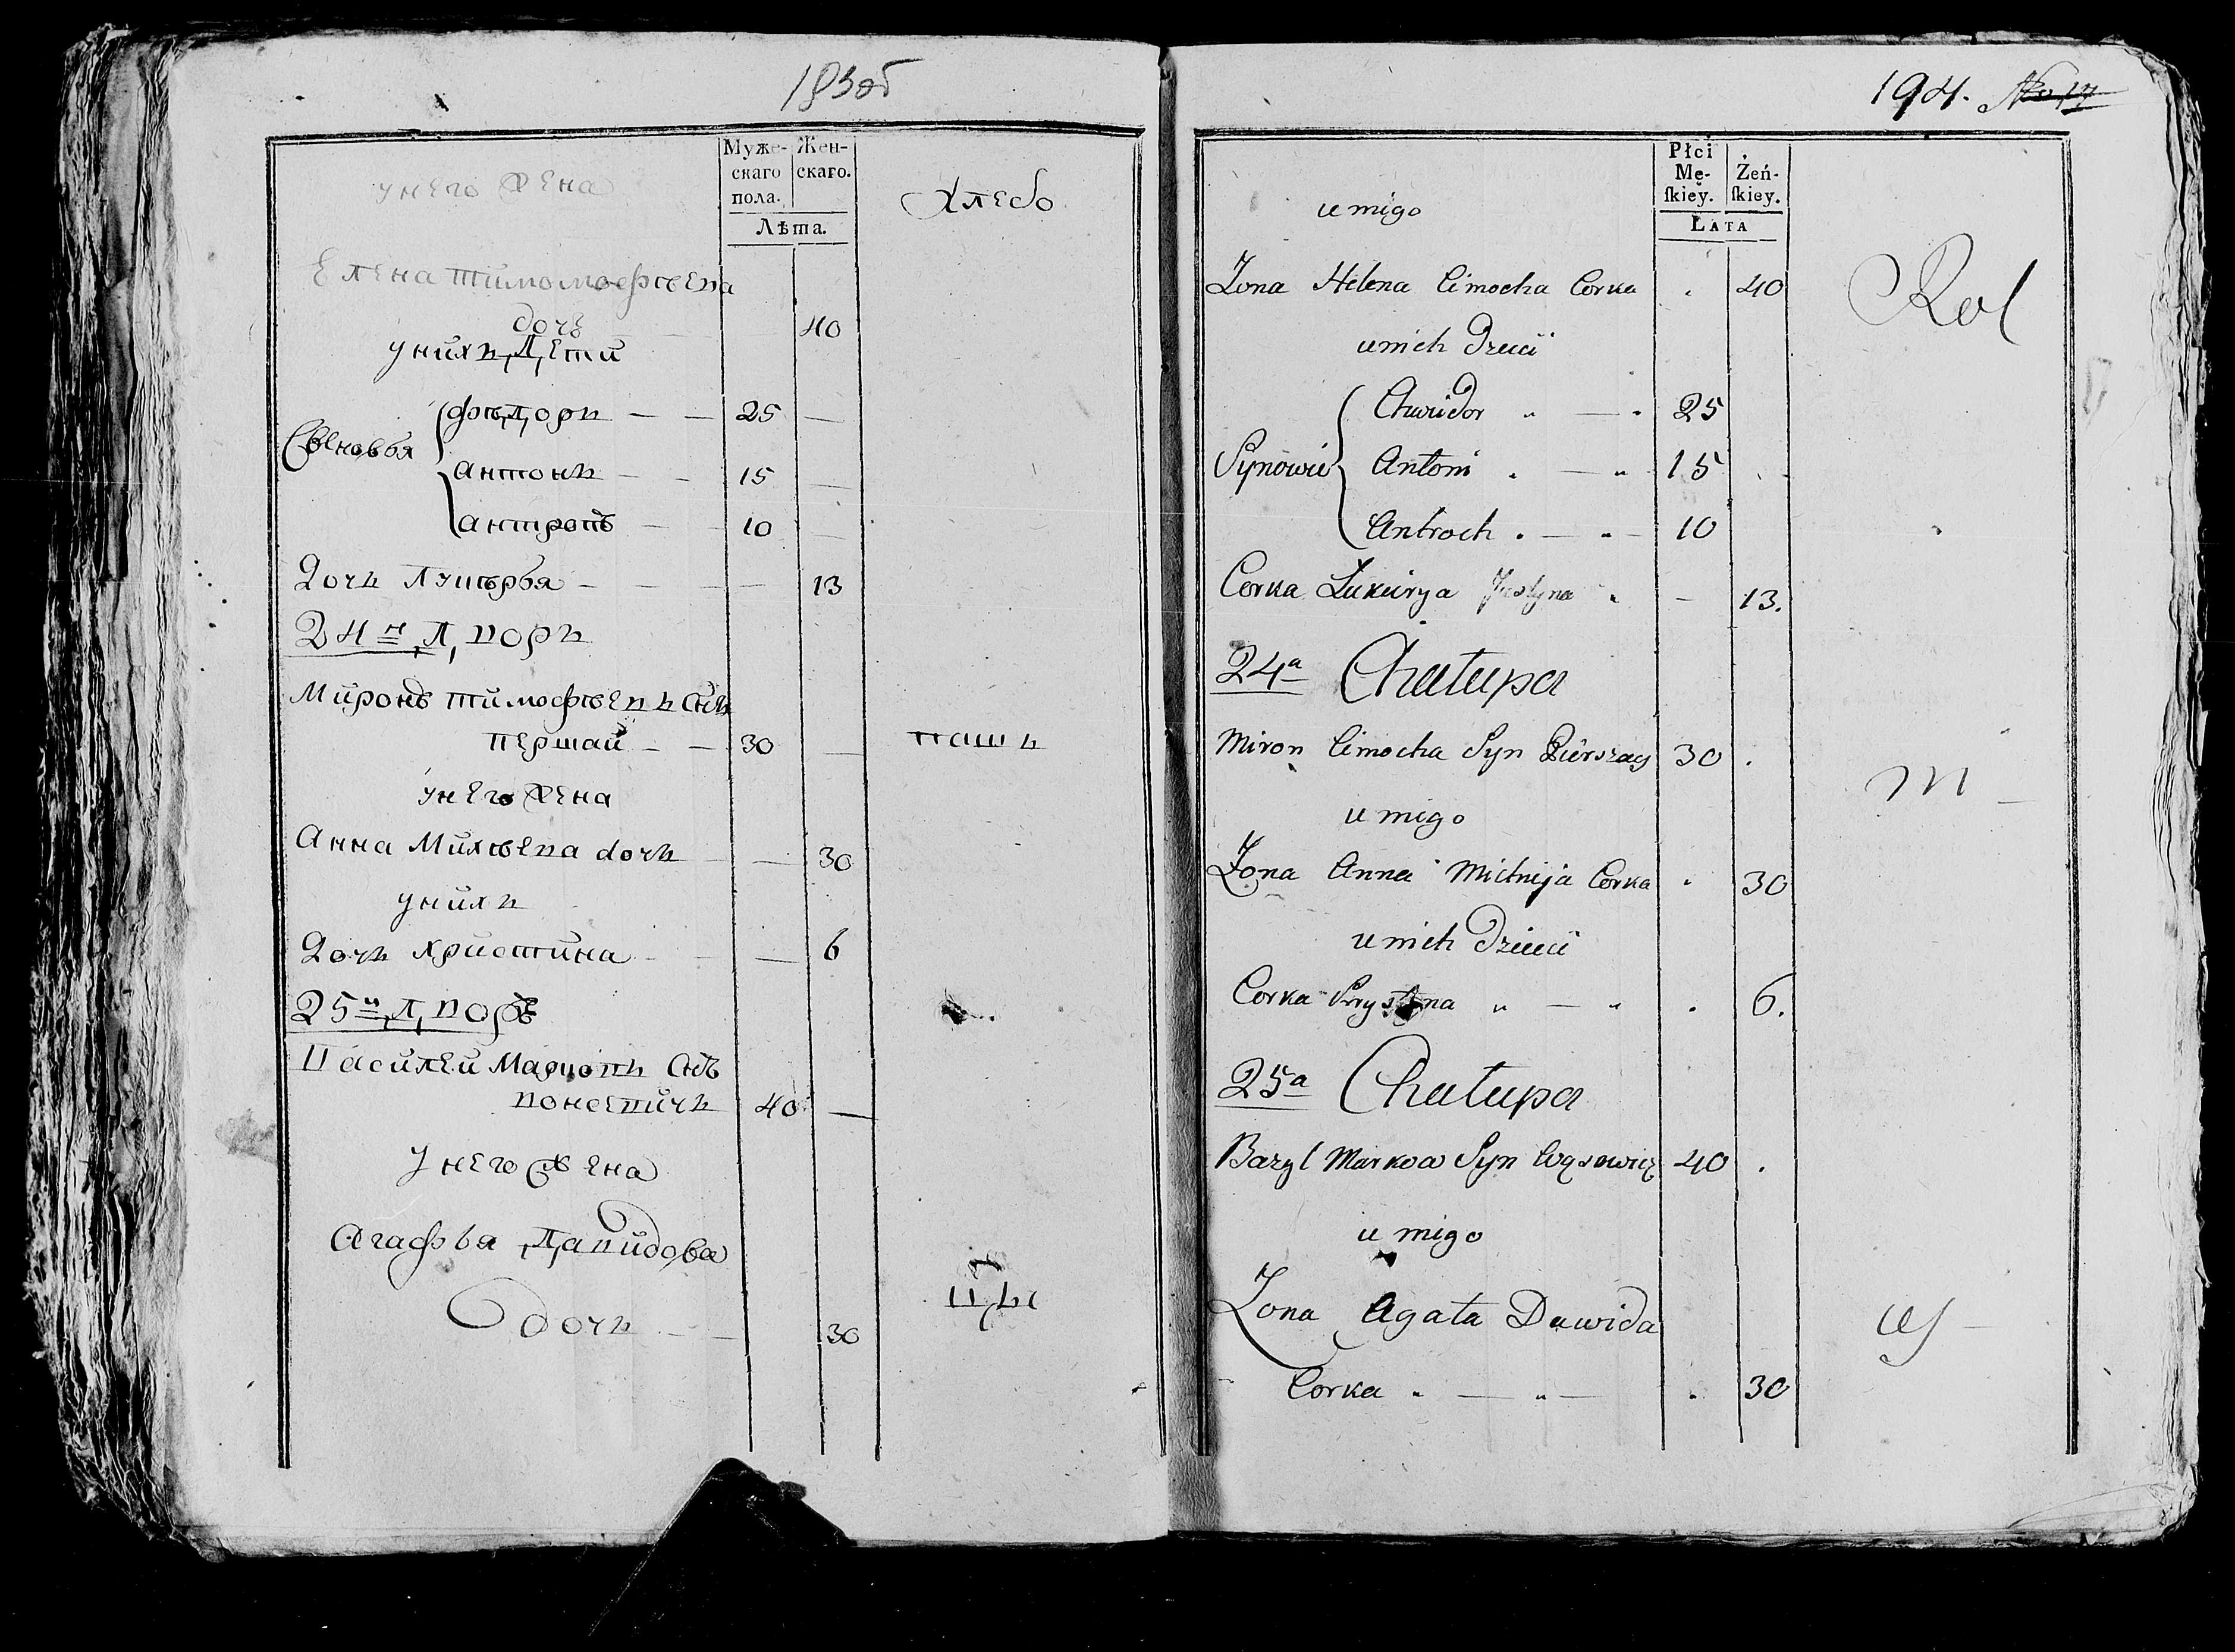 183об
Муже-
скаго
пола.
Жен-
скаго.
Лѣта.
унего жена
Хлебо
Елена тимомоефѣева
дочь 40
унихъ Дети
Сыновья
фѣдоръ — — 25 —
антонъ — - 15 —
антропъ — - 10 —
Дочъ Лукѣрья — — — 13
24й Дворъ
Миронъ тимофѣевъ Снъ
першай — — 30 — пашъ
унего жена
Анна Михѣева дочъ — — 30
унихъ
Дочъ христина — — 6
25й Дворъ
Василей Марковъ Снъ
40 —
унего жена
Агафья Давидова
дочъ — — 30
194. No 17
Płci
Mę-
skiey.
Żeń-
skiey.
LATA
u niego
Rol
Zona Helena Cimocha Corka 40
u nich Dzieci
Synowie
Chwiedor 25
Antoni 15
Antroch 10
Corka Lukierya Justyna - 13.
24a Chałupa
Miron Cimocha Syn Pierszay 30
m
u niego
Zona Anna Michnieja Corka 30
u nich Dzieci
Corka Krystyna 6.
25a Chałupa
Bazyl Markoa Syn Wąsowicz 40
u niego
Zona Agata Dawida
Corka 30